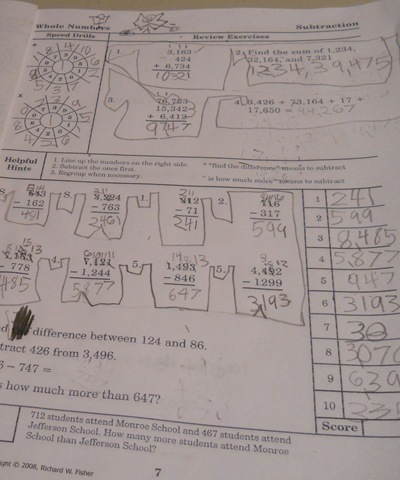 Whole Numbers Subtraction
Speed Drills Review Exercises
1. 3,163
424
+ 6,734
10321
2. Find the sum of 1,234,
32,164, and 7,321
3.
15,342
+ 6,412
9747
4. 3,426 + 73,164 + 17 +
17,650 =
Helpful
Hints
1. Line up the numbers on the right side.
2. Subtract the ones first.
3. Regroup when necessary.
* "find the difference" means to subtract
" is how much more" means to subtract
S. 643
- 162
481
S. 3,224
- 763
2461
1. 312
- 71
241
2. 916
- 317
599
- 778
4. 7,121
- 1,244
5877
5. 1,493
- 846
647
6. 4,492
- 1299
3193
difference between 124 and 86.
tract 426 from 3,496.
6 - 747 =
s how much more than 647?
1 241
2 599
3 8,485
4 5,877
5
6 3193
7 38
8 3070
9 639
10
Score
712 students attend Monroe School and 467 students attend
Jefferson School. How many more students attend Monroe
School than Jefferson School?
ight © 2008, Richard W. Fisher
7